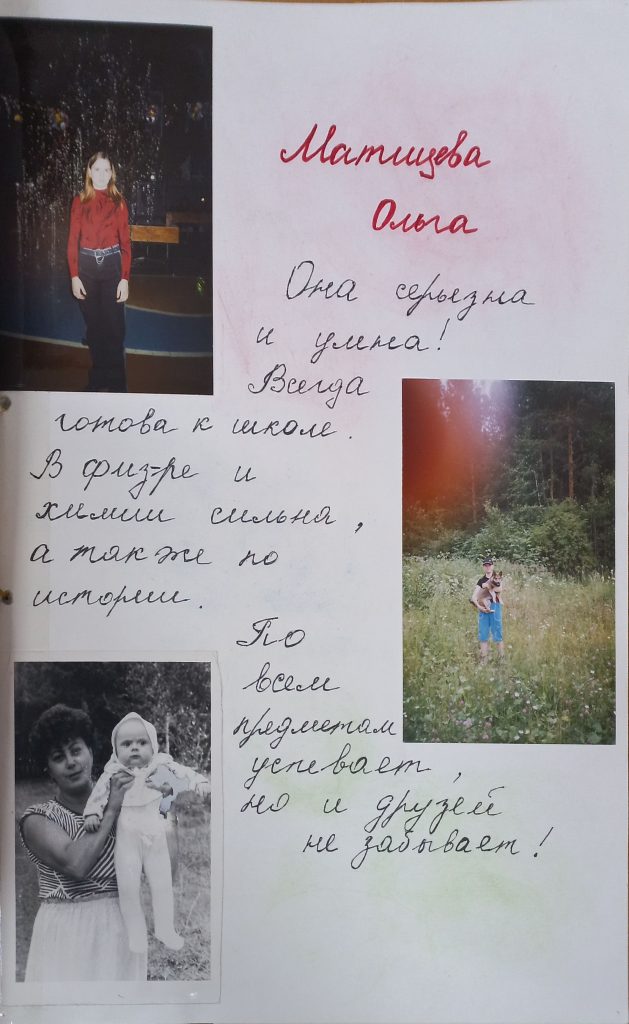 Матищева
Ольга
Она серьезна
и умна!
Всегда
готова к школе.
В физ-ре и
химии сильна,
а также по
истории.
По
всем
предметам
успевает,
но и друзей
не забывает!